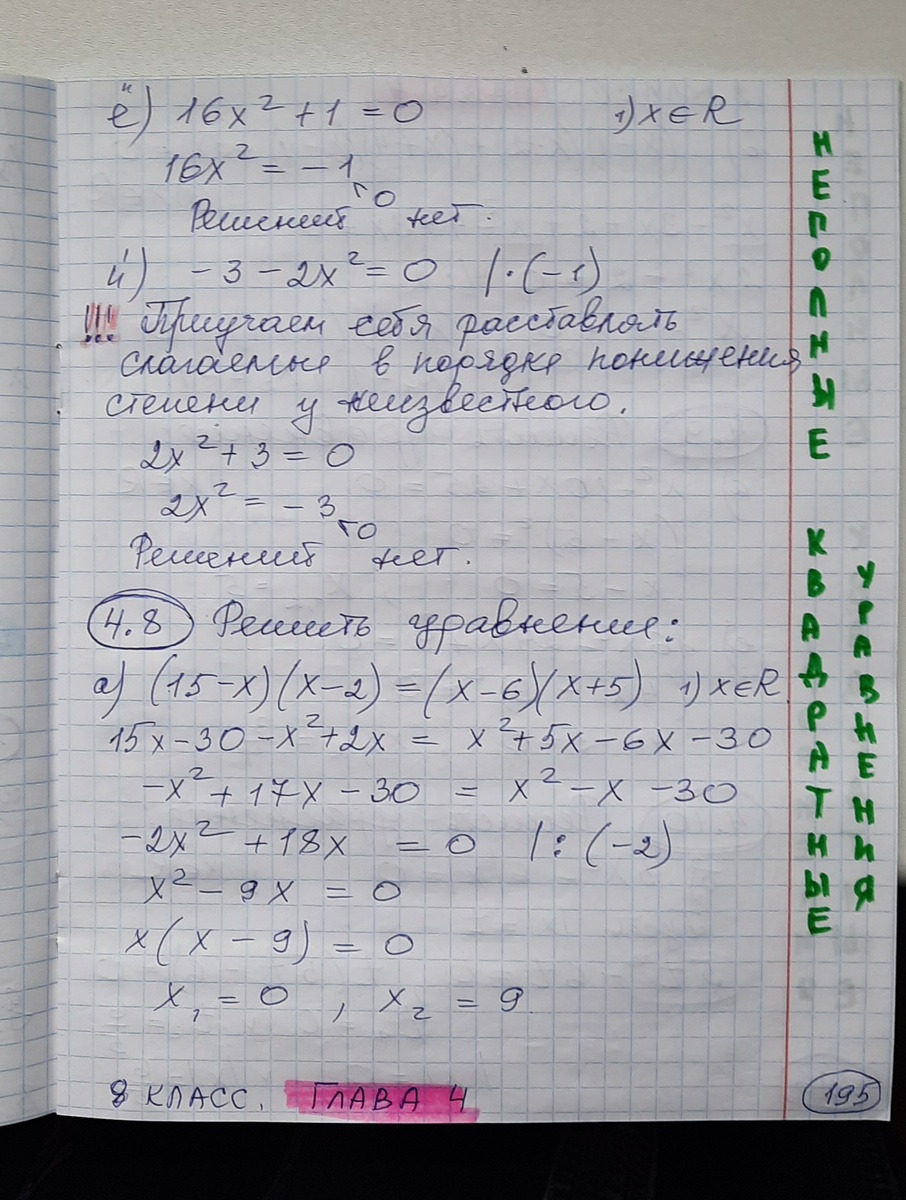 ё) 16x² + 1 = 0 1) x ∈ R
16x² = -1 < 0
Решений нет.
й) - 3 - 2x² = 0 | · (-1)
!!! Приучаем себя расставлять
слагаемые в порядке понижения
степени у неизвестного.
2x² + 3 = 0
2x² = - 3 < 0
Решений нет.
4.8 Решить уравнения:
а) (15-x)(x-2) = (x-6)(x+5) 1) x∈R
15x - 30 - x² + 2x = x² + 5x - 6x - 30
-x² + 17x - 30 = x² - x - 30
-2x² + 18x = 0 | : (-2)
x² - 9x = 0
x(x - 9) = 0
x₁ = 0 , x₂ = 9
8 КЛАСС. ГЛАВА 4
195
НЕПОЛНЫЕ КВАДРАТНЫЕ
УРАВНЕНИЯ